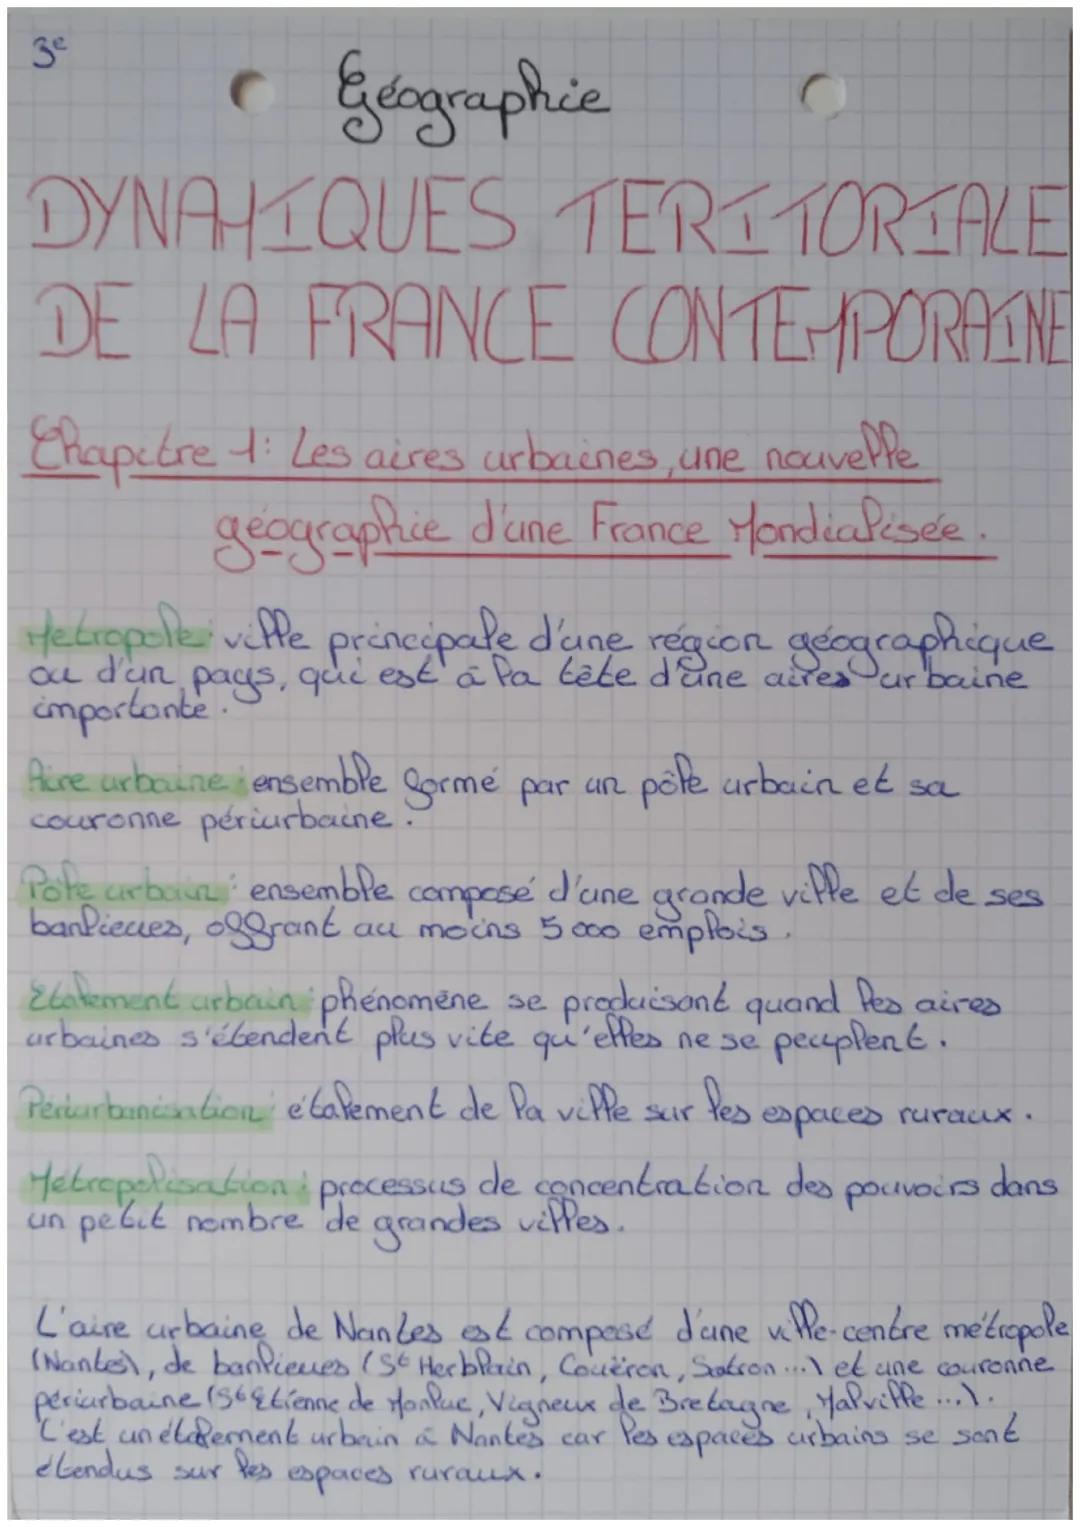 3e
Géographie
DYNAMIQUES TERITORIALE
DE LA FRANCE CONTEMPORAINE
Chapitre 1: Les aires urbaines, une nouvelle
géographie d'une France Mondialisée.
Metropole: ville principale d'une région géographique
ou d'un pays, qui est à la tête d'une aires urbaine
importante.
Aire urbaine: ensemble formé par un pôle urbain et sa
couronne périurbaine.
Pôle urbain: ensemble composé d'une grande ville et de ses
banlieues, offrant au moins 5000 emplois.
Etalement urbain: phénomène se produisant quand les aires
urbaines s'étendent plus vite qu'elles ne se peuplent.
Périurbanisation: étalement de la ville sur les espaces ruraux.
Métropolisation: processus de concentration des pouvoirs dans
un petit nombre de grandes villes.
L'aire urbaine de Nantes est composé d'une ville-centre métropole
(Nantes), de banlieues (St Herblain, Couëron, Sautron...) et une couronne
périurbaine (St Etienne de Monluc, Vigneux de Bretagne, Malville...).
C'est un étalement urbain à Nantes car les espaces urbains se sont
étendus sur les espaces ruraux.